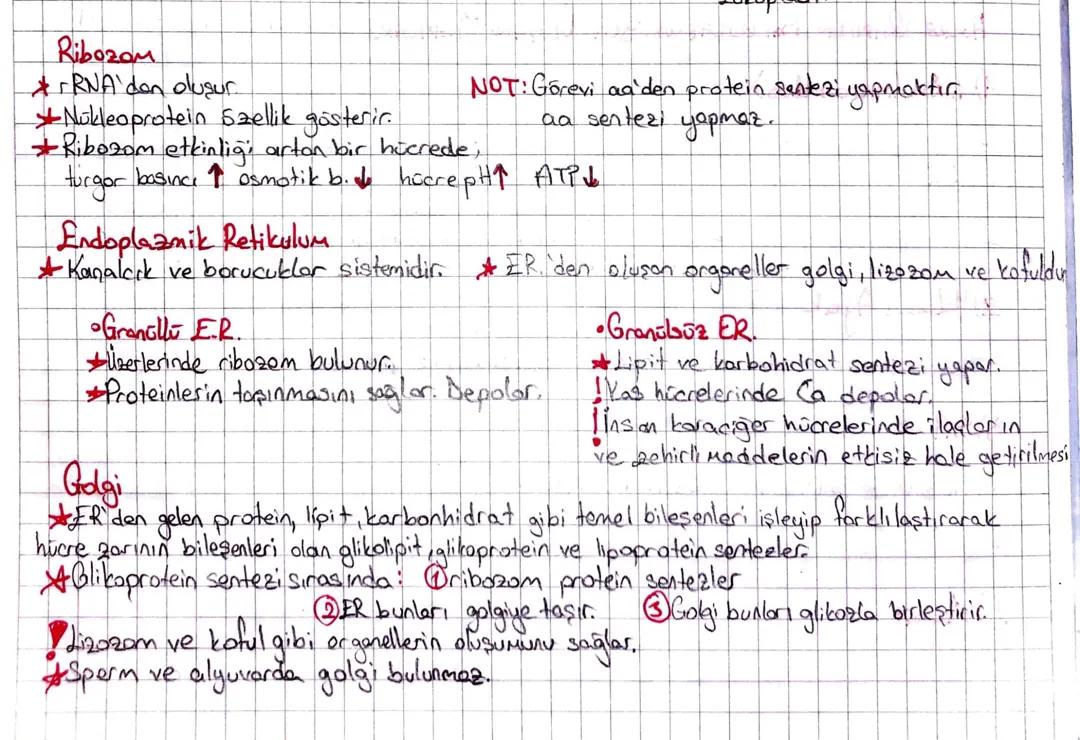 Ribozom
* rRNA'dan oluşur
NOT: Görevi aa'den protein sentezi yapmaktır.
* Nükleoprotein özellik gösterir.
aa sentezi yapmaz.
* Ribozom etkinliği artan bir hücrede;
turgor basıncı ↑ osmotik b. ↓ hücre pH ↑ ATP ↓
Endoplazmik Retikulum
* Kanalcık ve borucuklar sistemidir. * ER.'den oluşan organeller golgi, lizozom ve kofuldur
• Granüllü E.R.
* Üzerlerinde ribozom bulunur.
* Proteinlerin taşınmasını sağlar. Depolar.
• Granülsüz ER.
* Lipit ve karbohidrat sentezi yapar.
! Kas hücrelerinde Ca depolar.
! İnsan karaciğer hücrelerinde ilaçların
ve zehirli maddelerin etkisiz hale getirilmesi
Golgi
* ER'den gelen protein, lipit, karbonhidrat gibi temel bileşenleri işleyip farklılaştırarak
hücre zarının bileşenleri olan glikolipit, glikoprotein ve lipoprotein sentezler.
* Glikoprotein sentezi sırasında: ① ribozom protein sentezler
② ER bunları golgiye taşır. ③ Golgi bunları glikozla birleştirir.
! Lizozom ve koful gibi organellerin oluşumunu sağlar.
* Sperm ve alyuvarda golgi bulunmaz.